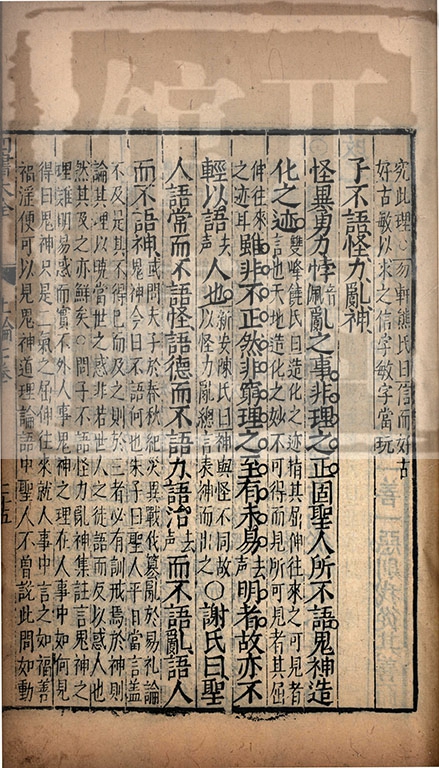 究此理○勿軒熊氏曰信而好古
好古敏以求之信字敏字當玩
子不語怪力亂神
怪異勇力悖音佩亂之事非理之正固聖人所不語鬼神造
化之迹雙峰饒氏曰造化之迹指其屈伸往來之可見者
言也天地造化之妙不可得而見所可見者其屈
伸往來之迹耳雖非不正然非窮理之至有未易去聲明者故亦不
輕以語去聲人也新安陳氏曰神與怪不同故以怪力亂總言表神而出之○謝氏曰聖
人語常而不語怪語德而不語力語治去聲而不語亂語人
而不語神或問夫子於春秋紀災異戰伐篡亂於易礼論
鬼神今曰不語何也朱子曰聖人平日當言蓋
不及是其不得已而及之則於三者必有訓戒焉於神則
論其理以曉當世之惑非若世人之徒語而反以惑人也
然其及之亦鮮矣○問子不語怪力亂神集註言鬼神之
理難明易惑而實不外人事鬼神之理在人事中如何見
得曰鬼神只是二氣之屈伸往來就人事中言之如福善
禍淫便可以見鬼神道理論語中聖人不曾說此問如動
四書大全
上論七卷
三十五